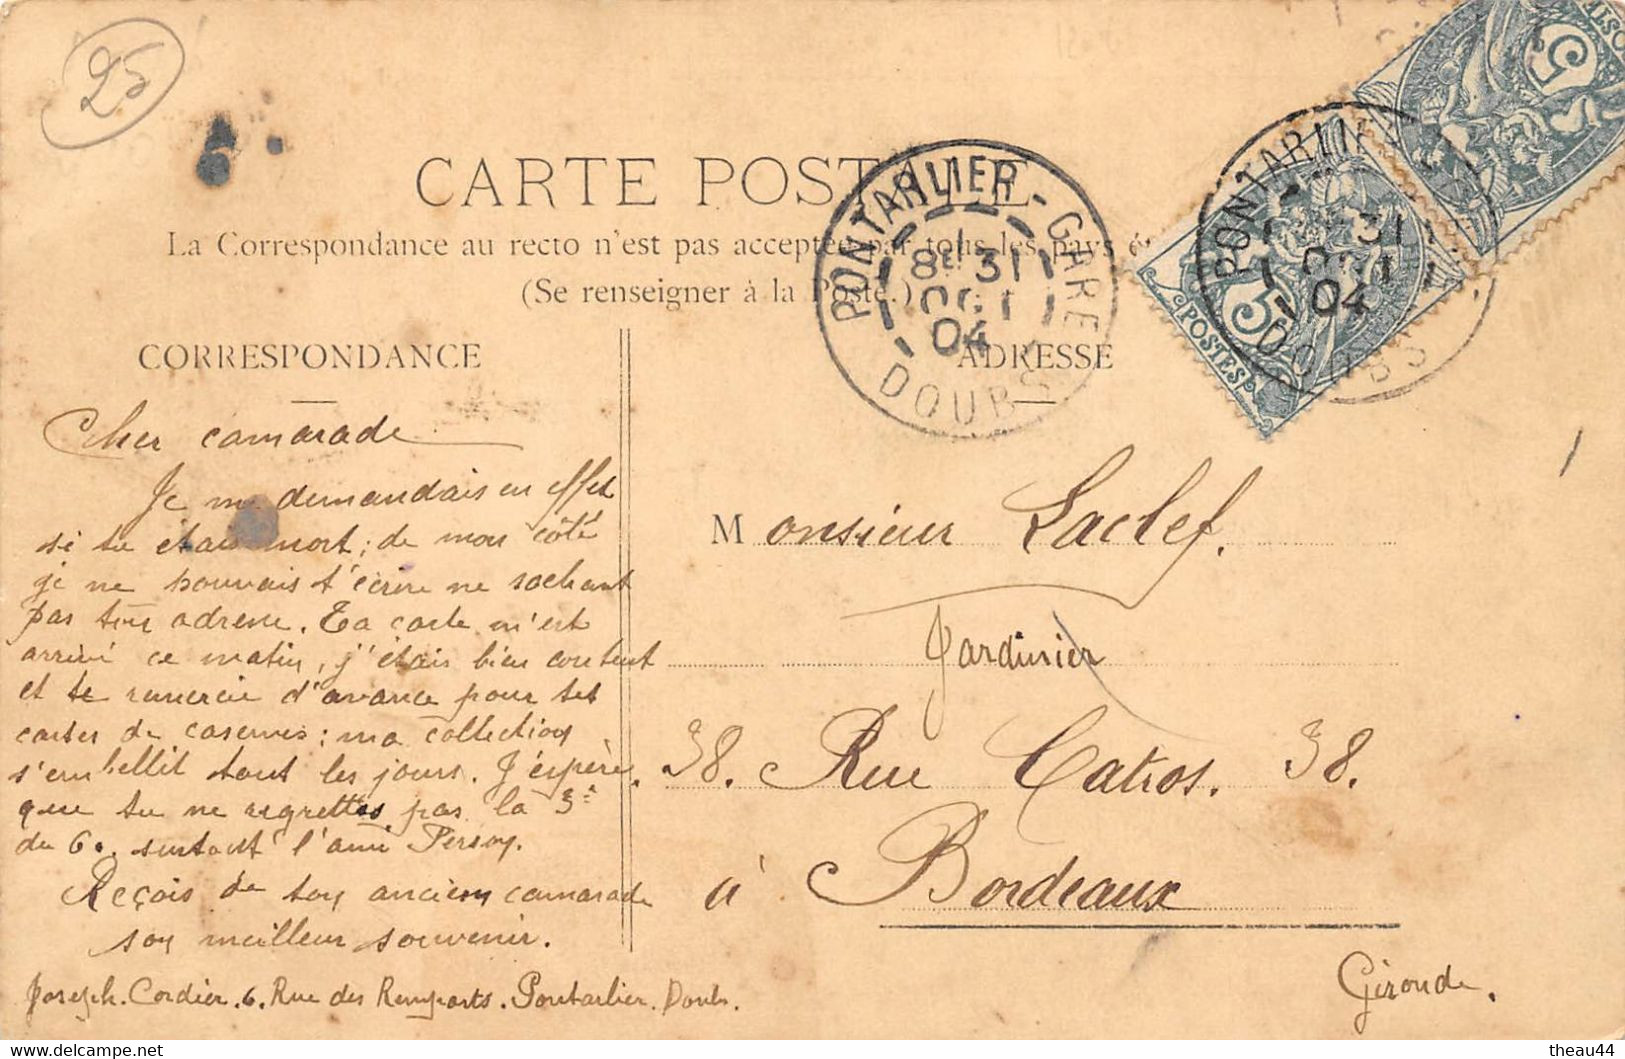 25
CARTE POSTALE
La Correspondance au recto n'est pas acceptée par tous les pays é
(Se renseigner à la Poste.)
PONTARLIER-GARE
8h 31
OCT
04
DOUBS
PONTARLIE
31
OCT
04
DOUBS
5
POSTES
5
CORRESPONDANCE
ADRESSE
Cher camarade
Je me demandais en effet
si tu étais mort ; de mon côté
je ne pouvais t'écrire ne sachant
pas ton adresse. Ta carte m'est
arrivé ce matin, j'étais bien content
et te remercie d'avance pour tes
cartes de casernes ; ma collection
s'embellit tout les jours. J'espère
que tu ne regrettes pas la 3e
du 60. surtout l'ami Persoy.
Reçois de ton ancien camarade
son meilleur souvenir.
Joseph Cordier. 6. Rue des Remparts. Pontarlier. Doubs.
Monsieur Laclef.
Jardinier
38. Rue Catros. 38.
à Bordeaux
Gironde.
theau44